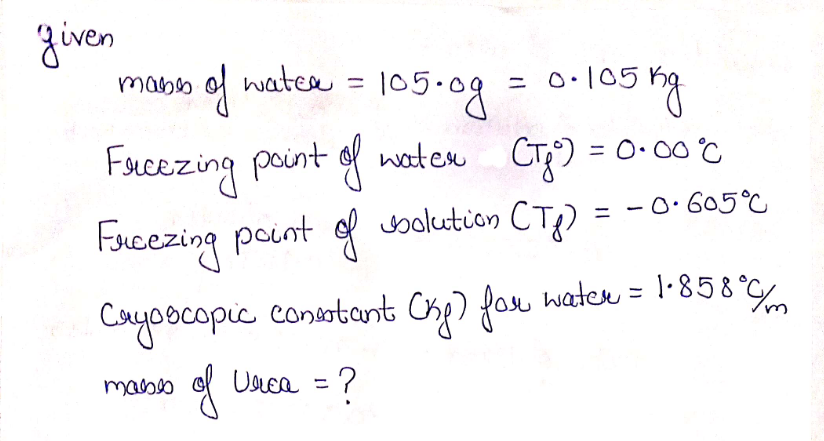 given
mass of water = 105.0g = 0.105 Kg
Freezing point of water (Tf°) = 0.00 °C
Freezing point of solution (Tf) = - 0.605°C
Cryoscopic constant (Kf) for water = 1.858°C/m
mass of Urea = ?